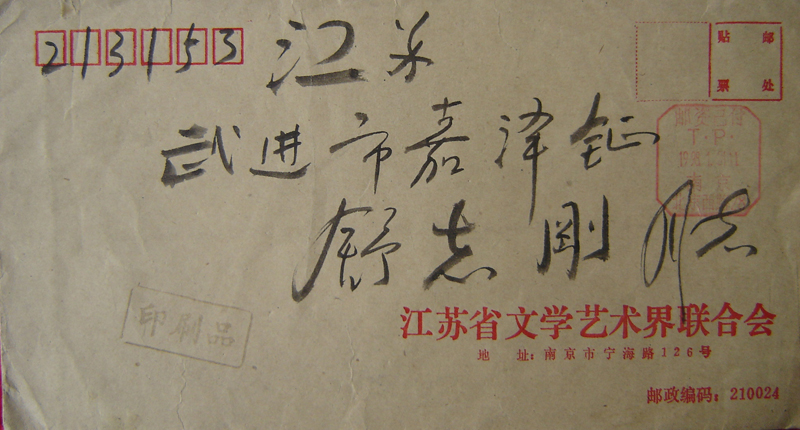 213153
江苏
贴 邮
票 处
武进市嘉泽镇
T.P.
南京
舒志刚同志
印刷品
江苏省文学艺术界联合会
地 址：南京市宁海路126号
邮政编码：210024